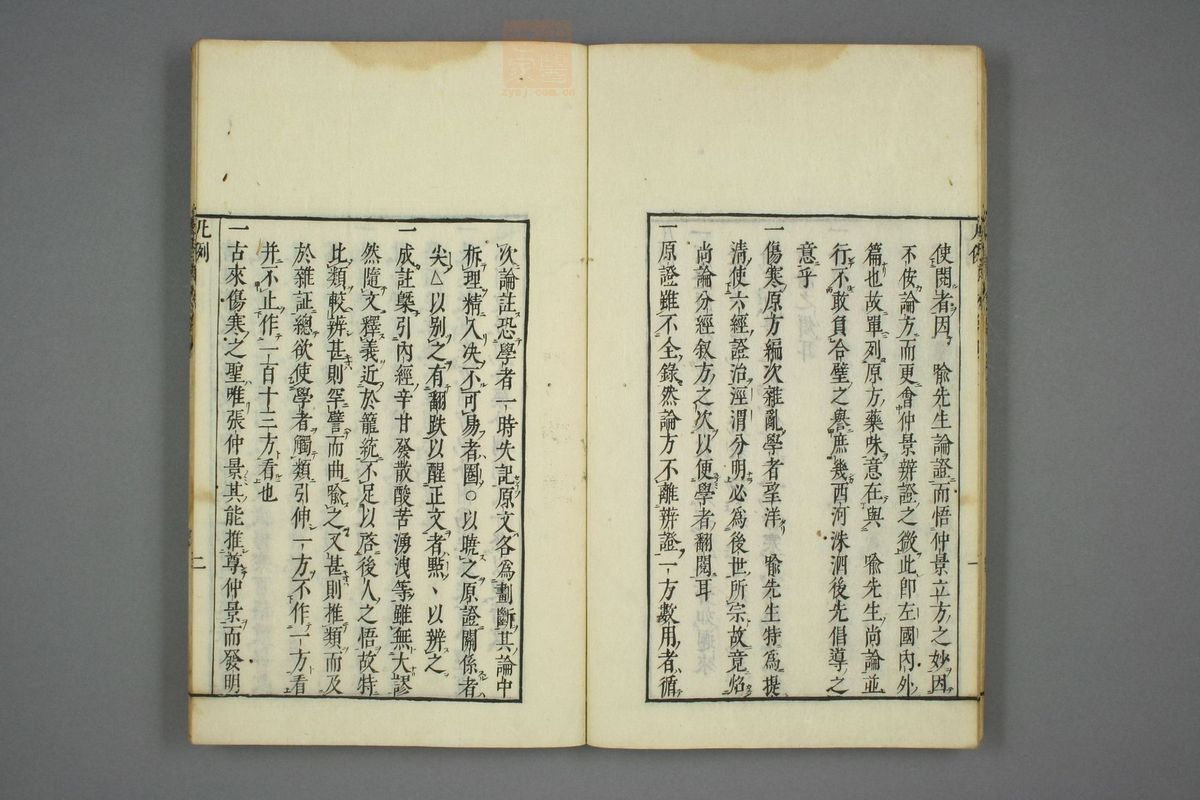 使閱者因　喻先生論證而悟仲景立方之妙因
不侫論方而更會仲景辨證之微此卽左國內外
篇也故單列原方藥味意在與　喻先生尚論並
行不敢負合璧之譽庶幾西河洙泗後先倡導之
意乎
一傷寒原方編次雜亂學者望洋　喻先生特爲提
清使六經證治涇渭分明必爲後世所宗故竟炤
尚論分經叙方之次以便學者翻閱耳
一原證雖不全錄然論方不離辨證一方數用者循
次論註恐學者一時失記原文各爲劃斷其論中
析理精入决不可易者圈○以曉之原證關係者
尖△以別之有翻跌以醒正文者㸃、以辨之
一成註槩引內經辛甘發散酸苦湧洩等雖無大謬
然隨文釋義近於籠統不足以啓後人之悟故特
比類較辨甚則罕譬而曲喻之又甚則推類而及
於雜証總欲使學者觸類引伸一方不作一方看
并不止作一百十三方看也
一古來傷寒之聖唯張仲景其能推尊仲景而發明
凡例
二
zysj.com.cn